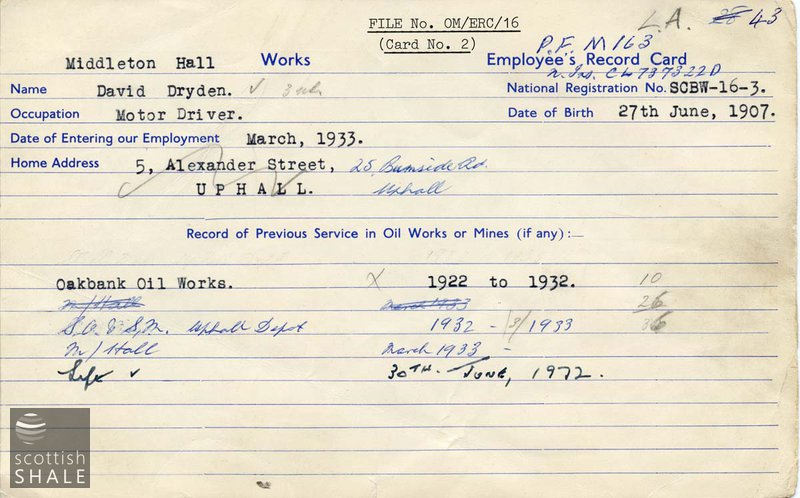 FILE No. OM/ERC/16 L.A. 28 43
(Card No. 2) P.F. M163
Middleton Hall Works Employee's Record Card
N. Ins. CW737322D
Name David Dryden. ✓ National Registration No. SCBW-16-3.
Occupation Motor Driver. Date of Birth 27th June, 1907.
Date of Entering our Employment March, 1933.
Home Address 5, Alexander Street, 25 Burnside Rd.
UPHALL. Uphall
Record of Previous Service in Oil Works or Mines (if any):—
Oakbank Oil Works. X 1922 to 1932. 10
M/Hall March 1933 26
S.A. & S.M. Uphall Depot 1932 - 1933 36
M/Hall March 1933 -
Left ✓ 30TH. JUNE, 1972.
scottish
SHALE